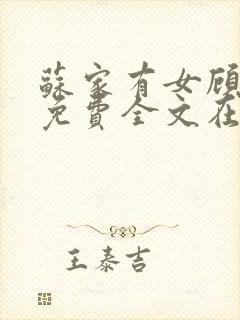 蘇家有女顧
免費全文在
王泰吉